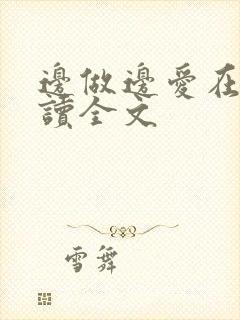 邊做邊愛在
讀全文
雪舞